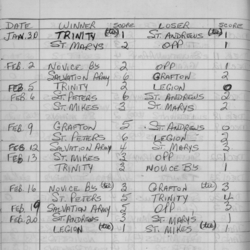 DATE WINNER SCORE LOSER SCORE
JAN.30 TRINITY (tie) 1 ST. ANDREWS (tie) 1
ST. MARYS 2 OPP 1
FEB. 2 NOVICE B'S 2 OPP 1
SALVATION ARMY 6 GRAFTON 2
FEB. 5 TRINITY 2 LEGION 0
FEB. 6 ST. PETERS 6 ST. ANDREWS 2
ST. MIKES 3 ST. MARYS 2
FEB. 9 GRAFTON 5 ST. ANDREWS 2
ST. PETERS 4 LEGION 2
FEB 12 SALVATION ARMY 4 ST. MARYS 3
FEB. 13 ST. MIKES 2 OPP 1
TRINITY 3 NOVICE B'S 1
FEB. 16 NOVICE B'S (tie) 3 GRAFTON (tie) 3
ST. PETERS 5 TRINITY 4
FEB. 19 SALVATION ARMY 5 OPP 3
FEB. 20 ST. ANDREWS 2 ST. MARYS
LEGION (tie) 1 ST. MIKES (tie) 1